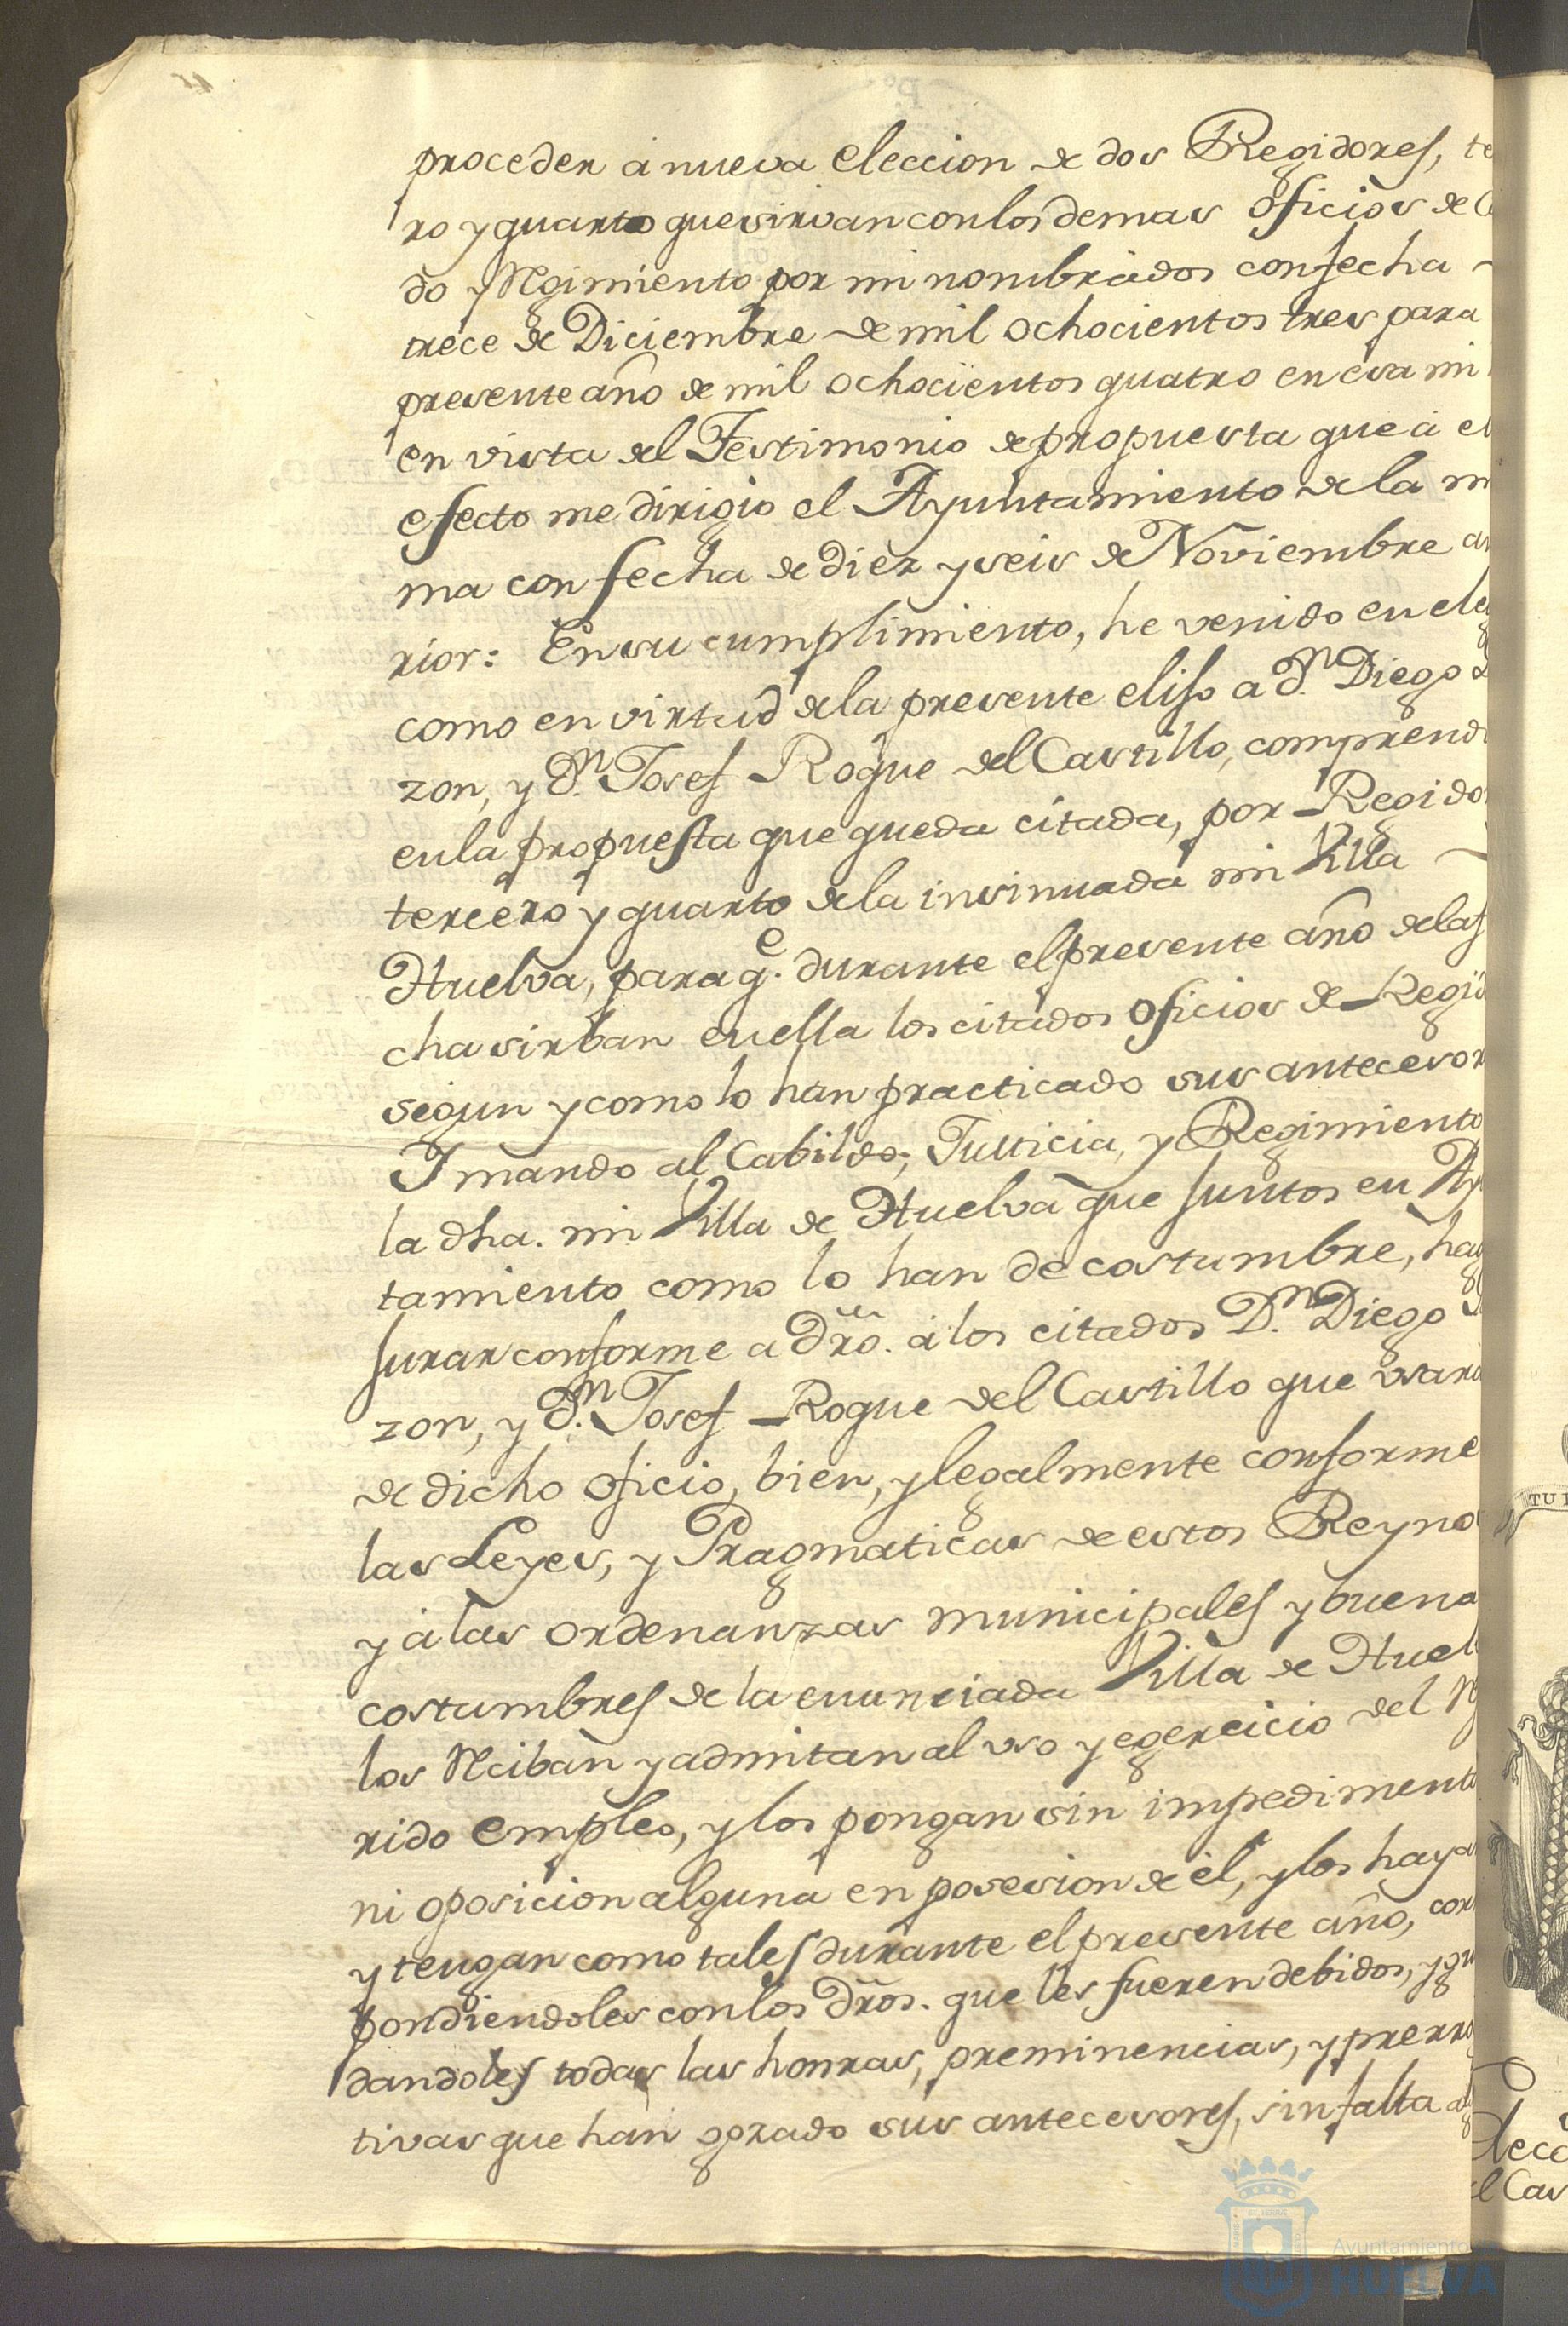 proceder á nueva eleccion de dos Regidores, te
ro y quarto que sirvan con los demas oficios de C
do y Regimiento por mi nombrados con fecha
trece de Diciembre de mil ochocientos tres para
presente año de mil ochocientos quatro en esa mi
en vista del Testimonio de propuesta que á el
efecto me dirigio el Ayuntamiento de la m
ma con fecha de diez y seis de Noviembre an
rior: En su cumplimiento, he venido en ele
como en virtud de la presente elijo a d.n Diego
zon, y d.n Josef Roque del Castillo, comprend
en la propuesta que queda citada, por Regido
tercero y quarto de la insinuada mi Villa
Huelva, para q.e durante el presente año de la f
cha sirban en ella los citados oficios de Regid
segun y como lo han practicado sus antecesor
Y mando al Cabildo, Justicia, y Regimiento
la dha. mi Villa de Huelva que juntos en Ay
tamiento como lo han de costumbre, hag
jurar conforme a dro. á los citados D.n Diego
zon, y d.n Josef Roque del Castillo que usara
de dicho oficio, bien, y legalmente conforme
las Leyes, y Pragmaticas de estos Reyno
y á las ordenanzas municipales y buena
costumbres de la enunciada Villa de Huel
los Reciban y admitan al uso y egercicio del
rido empleo, y los pongan sin impediment
ni oposicion alguna en posesion de él, y los haya
y tengan como tales durante el presente año, cor
pondiendoles con los dros. que les fueren debidos, y gu
dandoles todas las honras, preminencias, y prerro
tivas que han gozado sus antecesores, sin falta al
TU
lecc
el Cas
Ayuntamiento
HUELVA